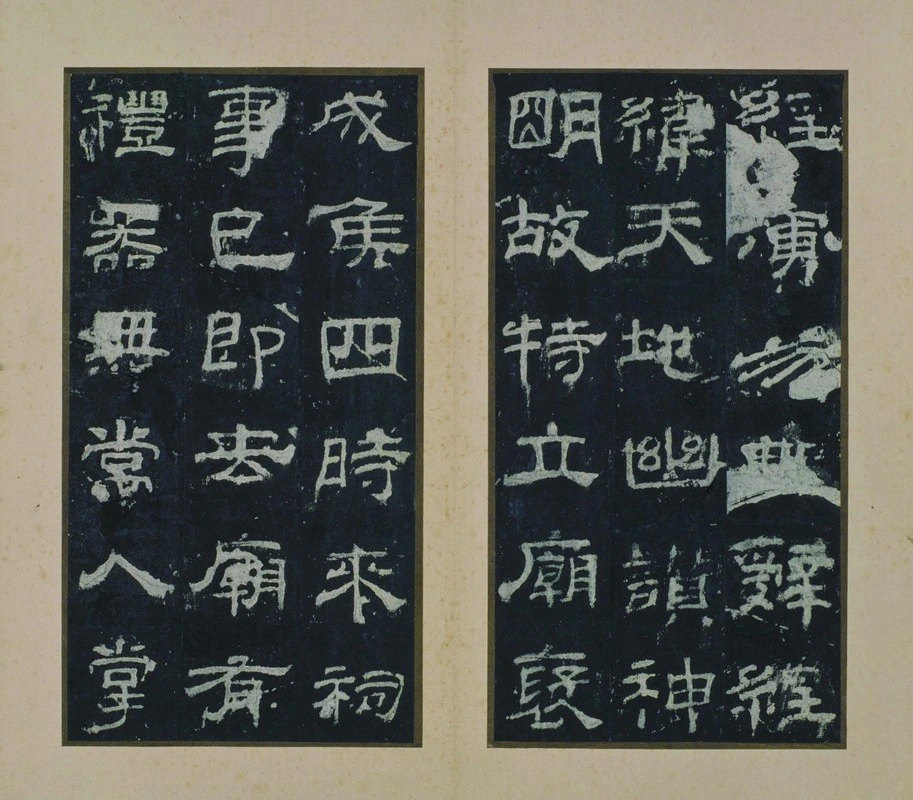 經演易辭經
緯天地幽讃神
朙故特立廟褒
成侯四時來祠
事已即去廟有
禮器無常人掌